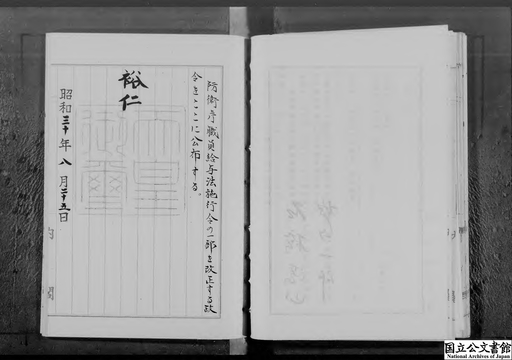 防衛庁職員給与法施行令の一部を改正する政
令をここに公布する。
裕仁
昭和三十年八月二十五日
内閣
国立公文書館
National Archives of Japan